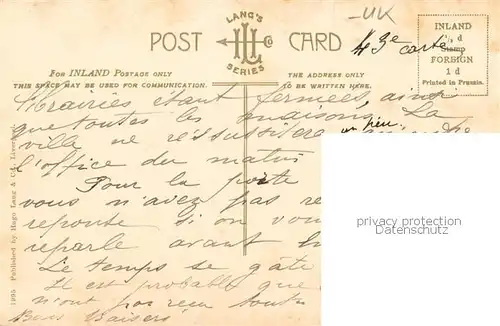 -UK
LANG'S
POST CARD
HL Co
SERIES
4 3e carte
INLAND
½ d
Stamp
FOREIGN
1 d
Printed in Prussia.
FOR INLAND POSTAGE ONLY
THIS SPACE MAY BE USED FOR COMMUNICATION.
THE ADDRESS ONLY
TO BE WRITTEN HERE.
librairies étant fermées, ainsi
que toutes les maisons. La
ville ne ressuscitera un peu
l'office du matin
Pour la poste
vous n'avez pas re
reponse si on vou
reparle avant
Le temps se gâte
Il est probable que
n'ont pas reçu tout
Bons Baisers
1995 Published by Hugo Lang & Co., Liverpool
privacy protection
Datenschutz